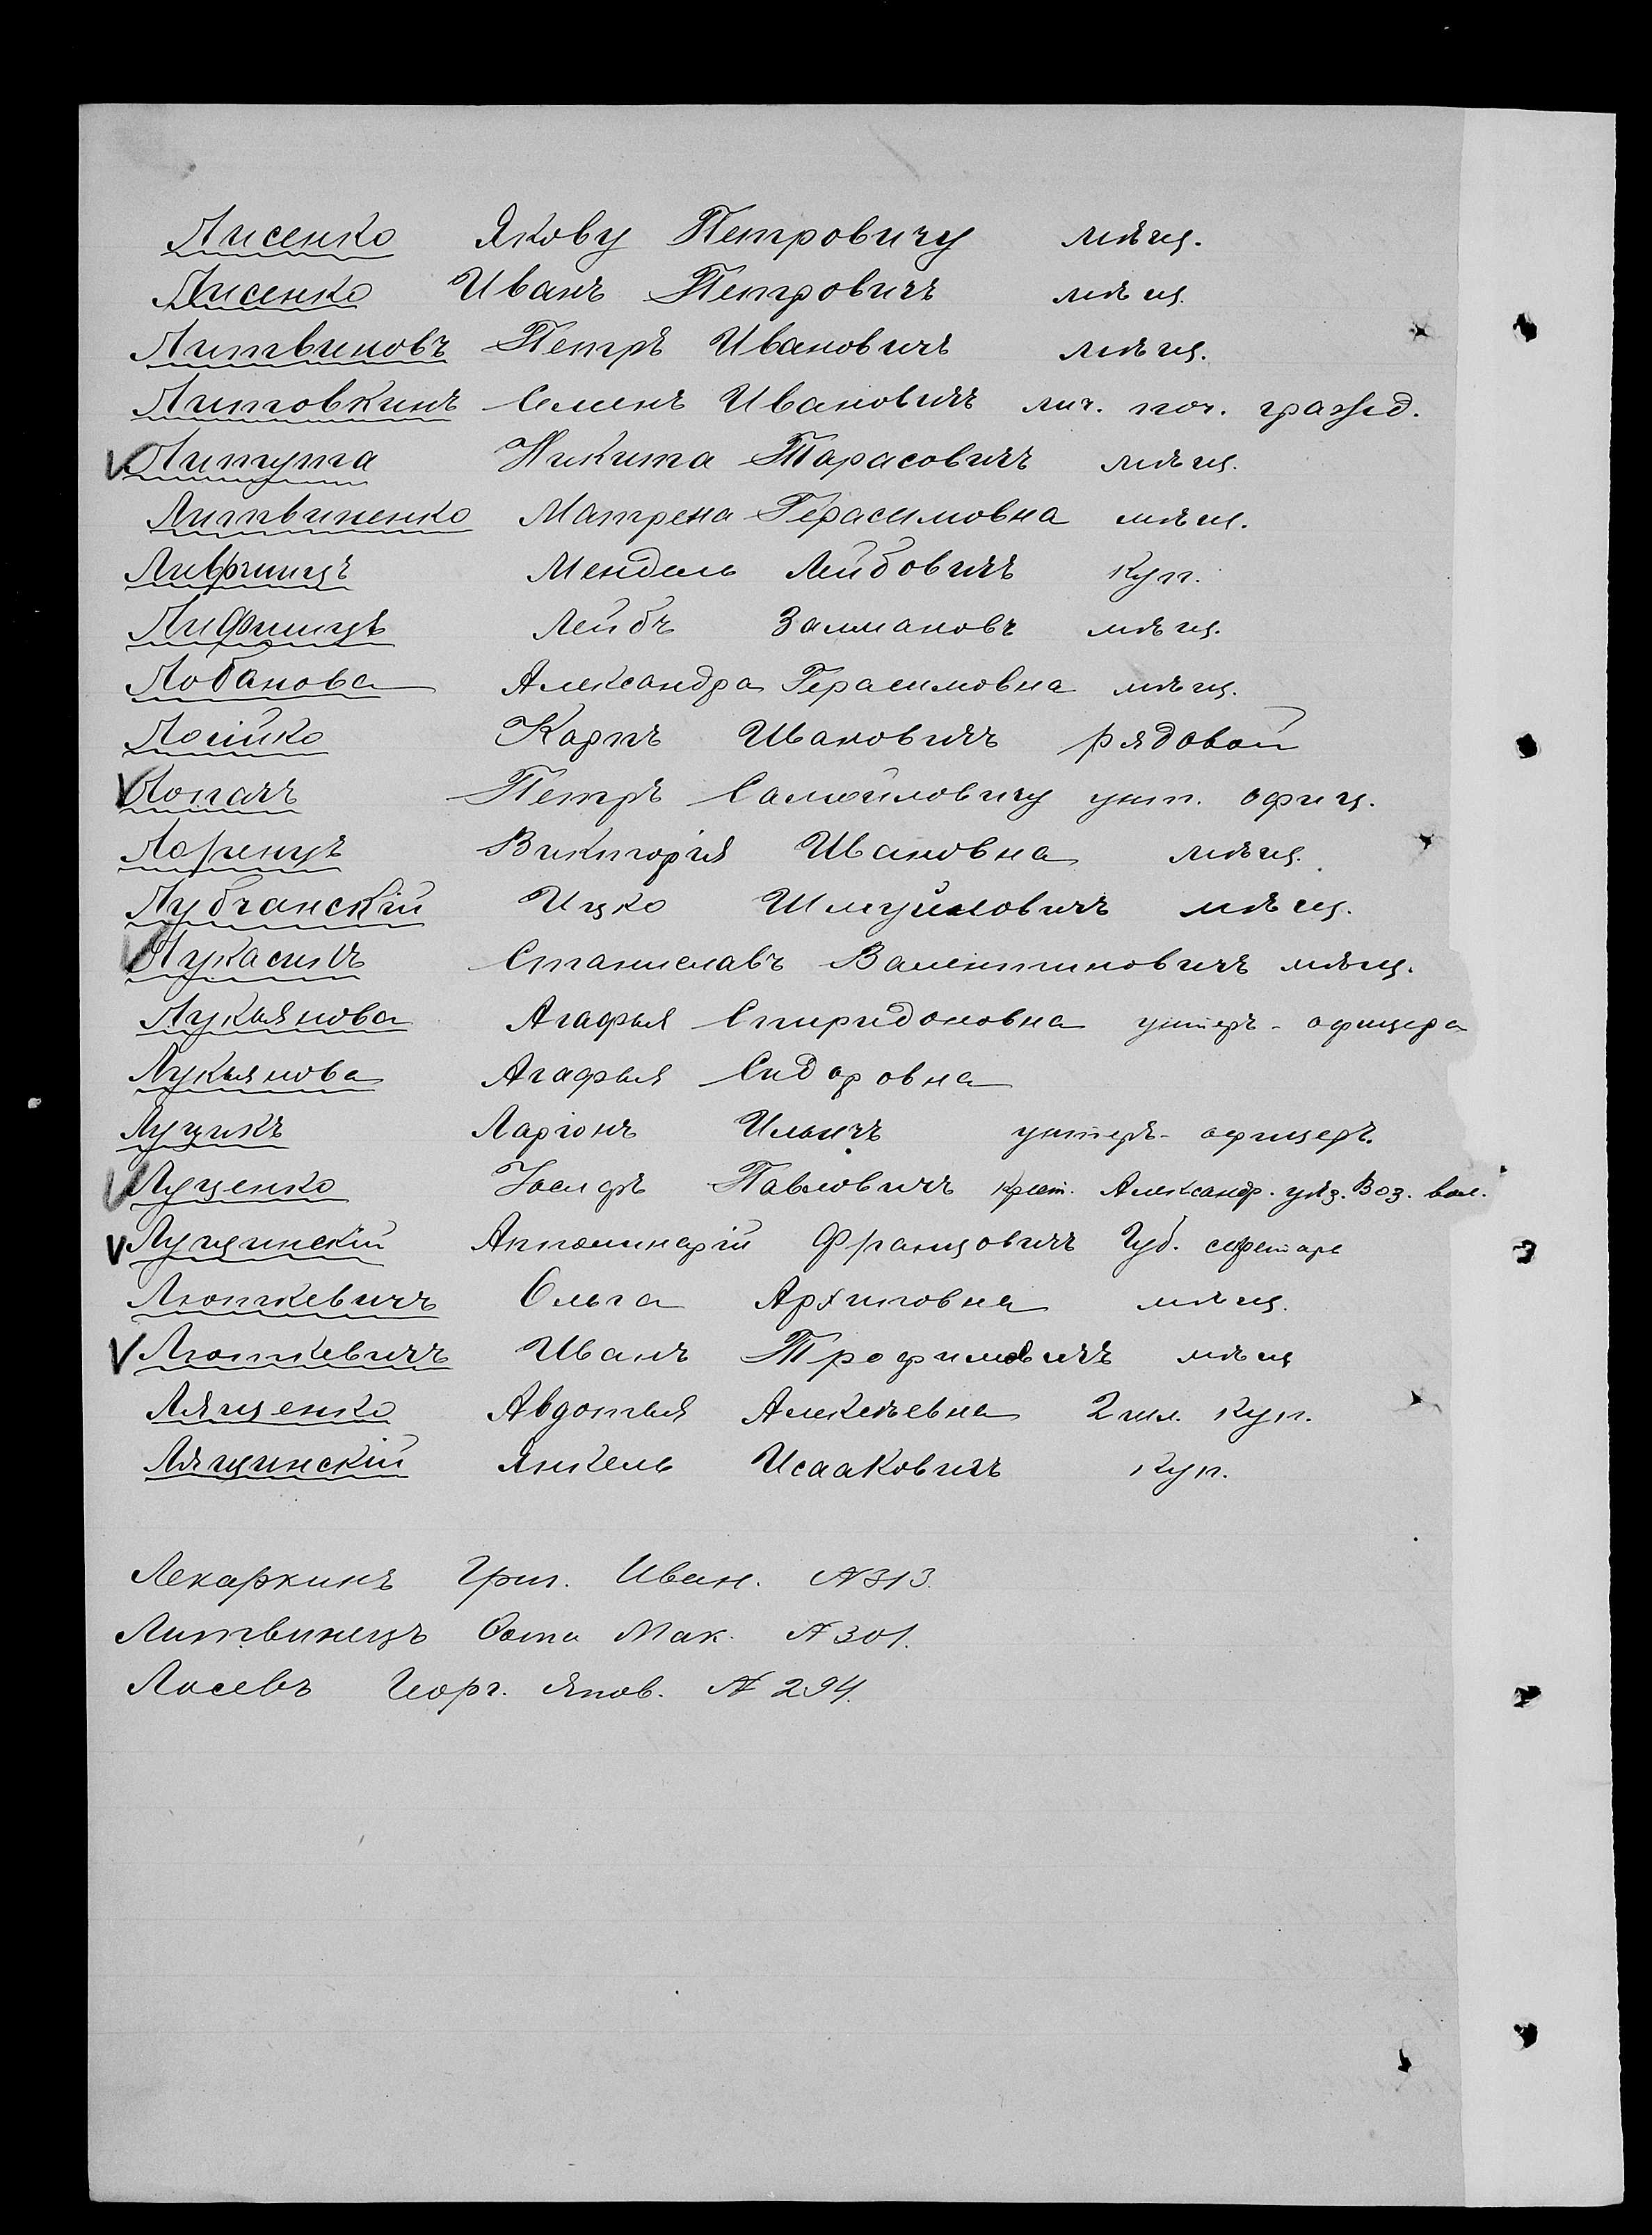 Лисенко Якову Петровичу мѣщ.
Лисенко Иванъ Петровичъ мѣщ.
Литвиновъ Петръ Ивановичъ мѣщ.
Литовкинъ Семенъ Ивановичъ лич. поч. гражд.
Литута Никита Тарасовичъ мѣщ.
Литвиненко Матрена Герасимовна мѣщ.
Лившицъ Мендель Лейбовичъ куп.
Лифшицъ Лейбъ Залмановъ мѣщ.
Лобанова Александра Герасимовна мѣщ.
Карпъ Ивановичъ рядовой
Лопачъ Петръ Самойловичу унт. офиц.
Лоренцъ Викторія Ивановна мѣщ.
Лубчанскій Ицко Шмуйловичъ мѣщ.
Лукасикъ Станиславъ Валентиновичъ мѣщ.
Лукьянова Агафья Спиридоновна унтеръ-офицера
Лукьянова Агафья Сидоровна
Луцикъ Ларіонъ Ильичъ унтеръ-офицеръ.
Луценко Іосифъ Павловичъ крест. Александр. уѣз. Воз. вол.
Лущинскій Апполинарій Францовичъ Губ. секретарь
Люткевичъ Ольга Архиповна мѣщ.
Люткевичъ Иванъ Трофимовичъ мѣщ
Лященко Авдотья Алексѣевна 2 гил. куп.
Лящинскій Янкель Исааковичъ куп.
Лекаркинъ Григ. Иван. № 313.
Литвинецъ Мак. № 301.
Лосевъ Георг. Яков. № 294.